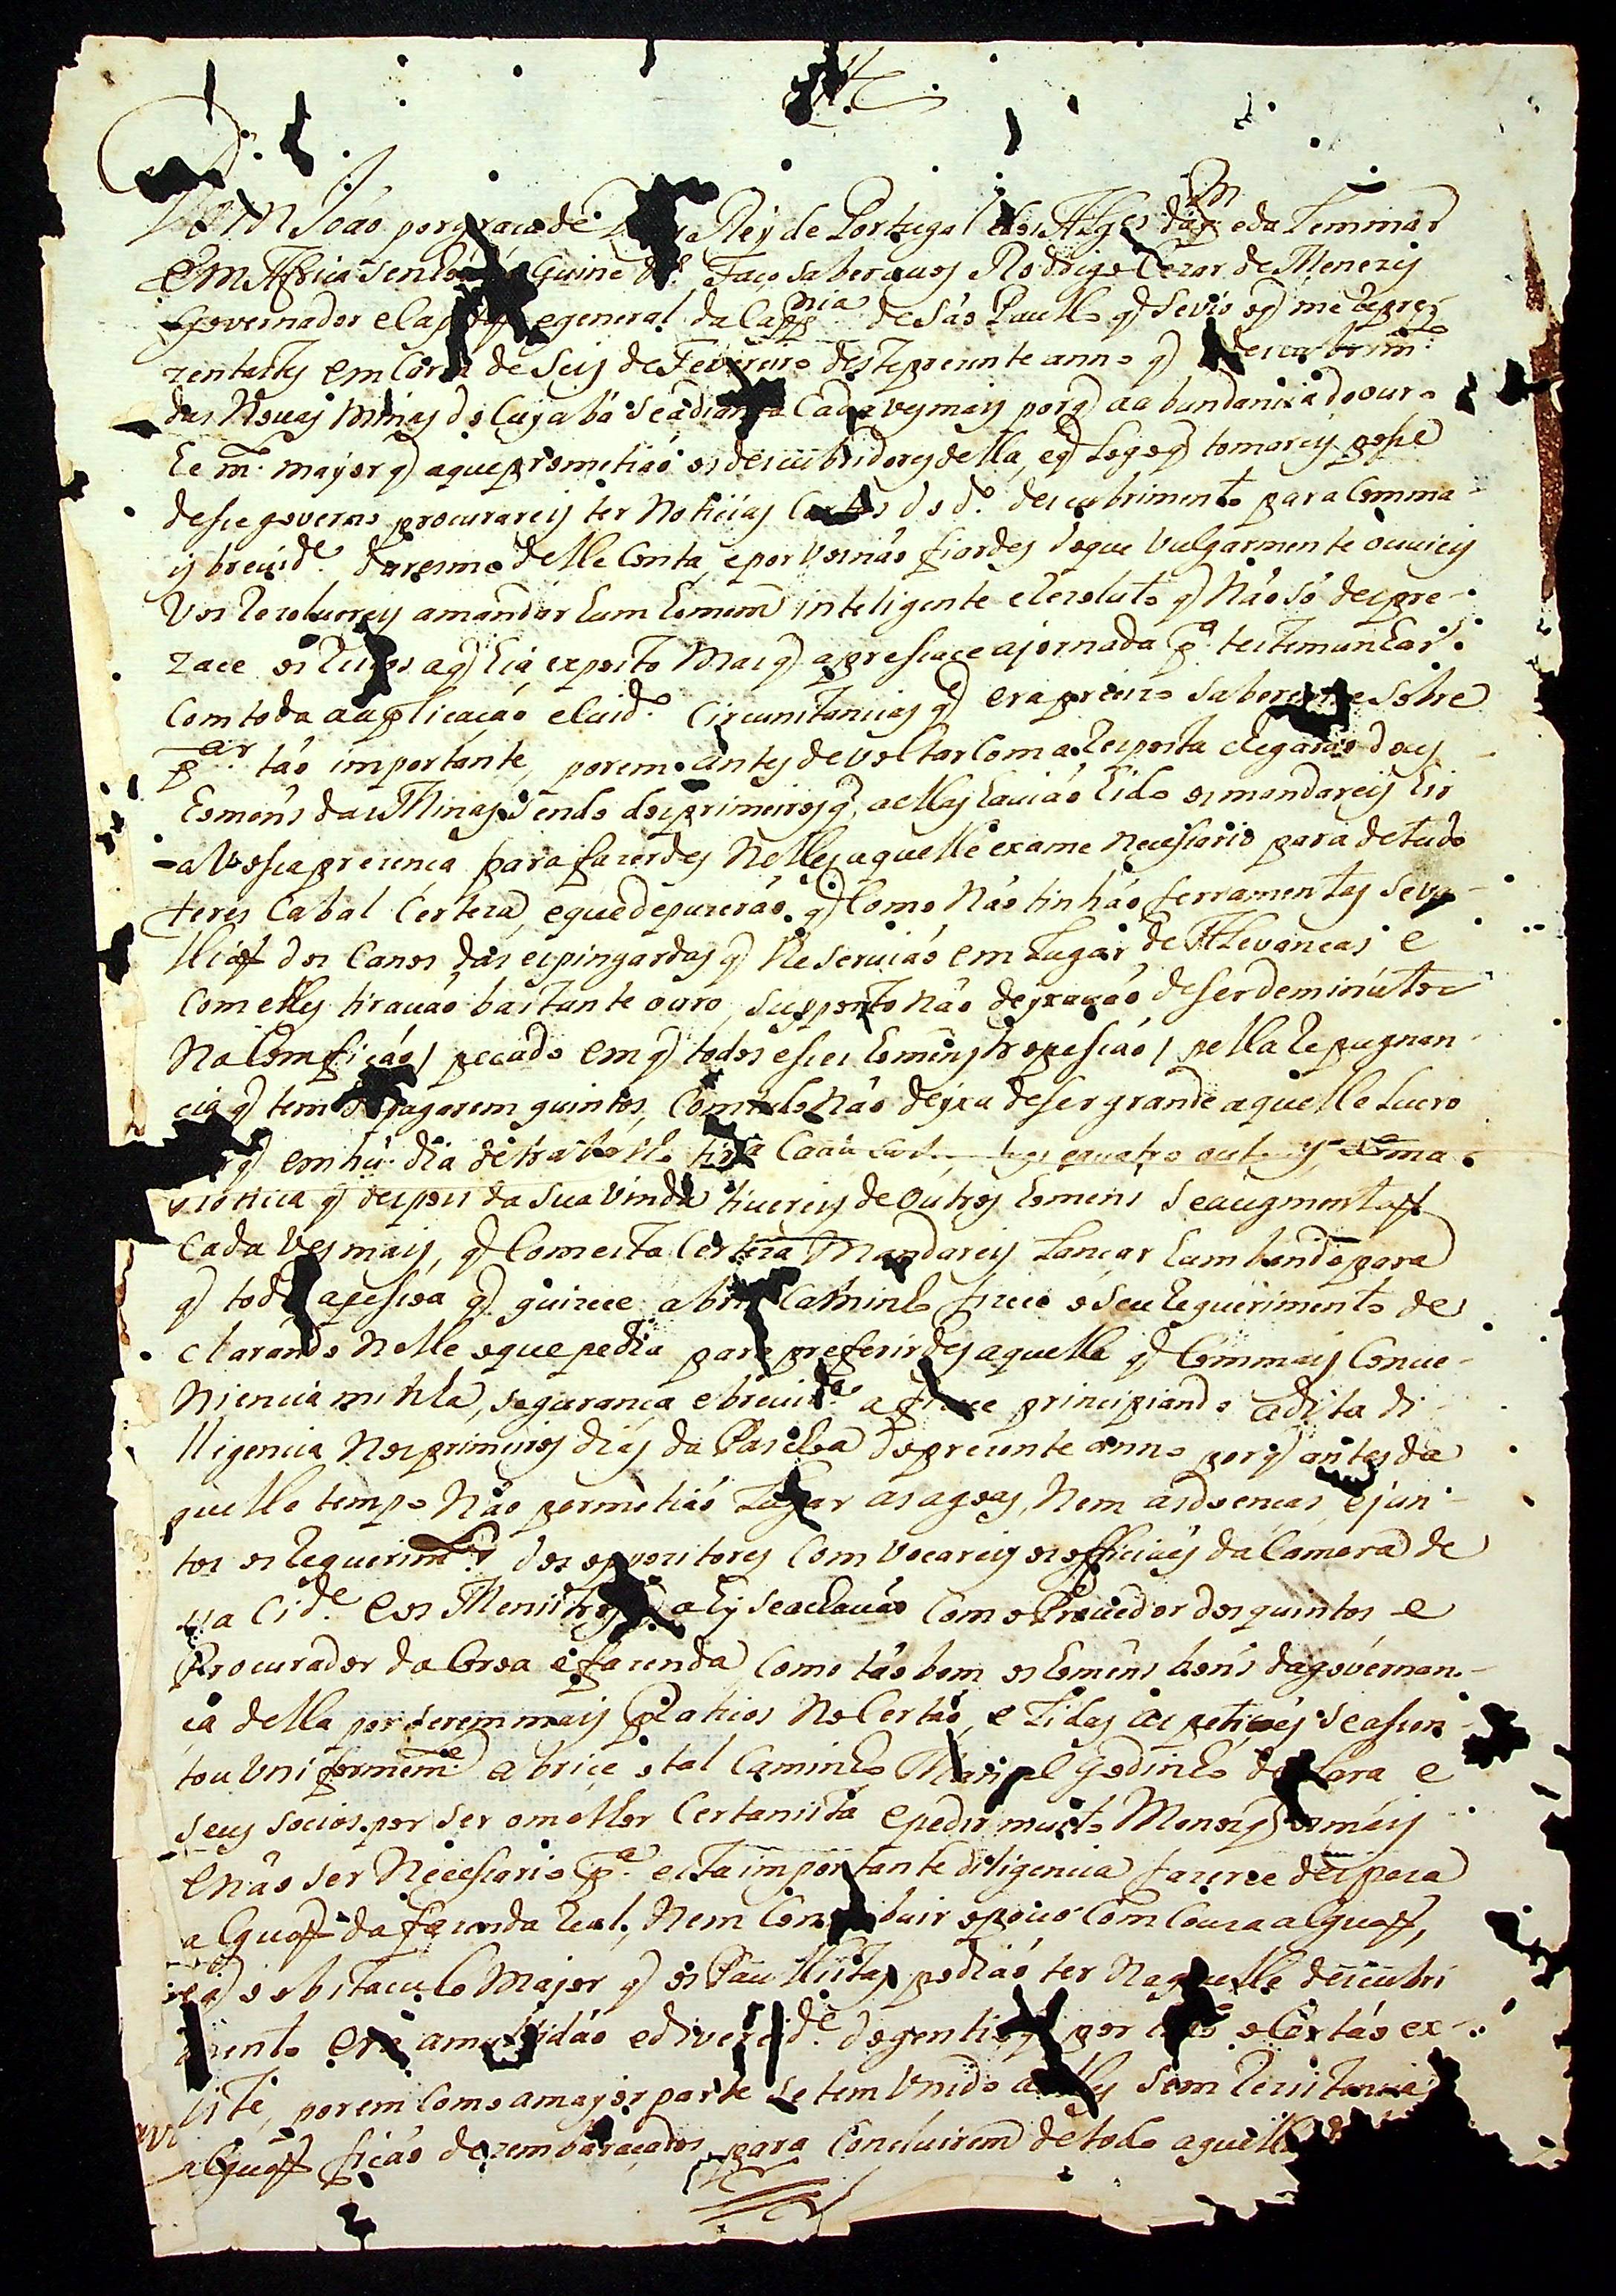 Dom Joáo por graca de Rey de Portugal e dos Algs daq̃m e da Lemmar
em Affrica Senhor Guiné &ª. Faço saber avos Rodrigo Cezar de Menezes
Governador e Cap egeneral da Cappnia de Sáo Paullo q̃ Sevio oq̃ me repre-
zentastes em Carta de Seis de Fevereiro deste prezente anno q̃ descubrimto
das Nouas Minas do Cuyabá Se adianta Cada ves mais porq̃ a abundancia do ouro
he m. mayor q̃ aque prometiaó os descubridores della, eq̃ Logoq̃ tomareis posse
desse governo procurareis ter Noticias Certas do dº. descubrimento para Comma-
is breuide. daresme delle Conta, e por Vos náo fiardes doque Vulgarmente ouuieis
Vos Rezoluereis amandar hum homem inteligente e Rezoluto q̃ Náo só despre-
zace os Riscos aq̃ hia exposto Mas q̃ apressace ajornada pª. testemunhar
Com toda a aplicaçáo e Cuidº. Circunstancias q̃ era precizo saberemse Sobre
par. táo importante, porem antes de voltar Com a Resposta chegaráo dous
homéns das Minas Sendo dos primeiros q̃ aellas hauiáo hido os mandareis hir
a Vossa prezença para fazerdes Nelles aquelle exame Necessario para de tudo
teres Cabal Certeza, eque depuzeráo q̃ Como Náo tinháo ferramentas Seva-
lliaõ dos Canos das espingardas q̃ lhe Seruiáo em Lugar de Alevancas e
Com elles tirauáo bastante ouro, Supposto náo deyxauáo de Ser deminútos
Na Comfiçáo / pecado em q̃ todos esses homens tropessáo / pella Repugnan-
cia q̃ tem a pagarem quintos, Comtudo Náo deyxa de Ser grande aquelle Lucro
porq̃ em hú dia de trabalho tira Cada hum tres equatro outauas, e ma
Noticia q̃ despois da Sua Vinda tivereis de Outros homens Se augmentaõ
Cada Ves mais, q̃ Com esta Certeza Mandareis Lançar hum bando para
q̃ toda apessoa q̃ quizece abrir Caminho fizece o Seu Requerimento de-
clarando Nelle oque pedia para preferirdes aquelle q̃ Commais Conue-
Niencia minha, segurança e breuide. a fizece principiando a dita di-
lligencia Nos primeiros dias da Pascoa do prezente anno porq̃ antes da
quelle tempo Náo permetiáo Lugar as agoas, Nem as doenças, e jun-
tos os Requerimtos. dos oppozitores Com vocareis os officiaes da Camera de
ssa Cide. e os Menistros q̃ ahy Se achauáo Como o Prouedor dos quintos e
Procurador da Coroa e fazenda Como táo bem os homéns bons da gouernan-
ça della por Serem mais Praticos No Certáo, e Lidas as petiçoes Se assen-
tou Vniformemte. abriçe o tal Caminho Manoel Godinho de Lara e
Seus Socios por Ser omelhor Certanista e pedir muito Menos q̃ os mais
e náo Ser Necessario pª. esta importante diligencia fazerce despeza
alguaõ da fazenda Real, Nem Contribuir o pouo Com Couza alguaõ,
e q̃ o obstaculo Mayor q̃ os Paullistas podiáo ter Naquelle descubri
mento era amultidáo ediuercide. do gentio q̃ por todo o Certáo ex-
iste, porem Como amayor parte Se tem Vnido a elles Sem Rezistencia
alguaõ ficáo dezembaraçados para Concluirem de todo aquelle